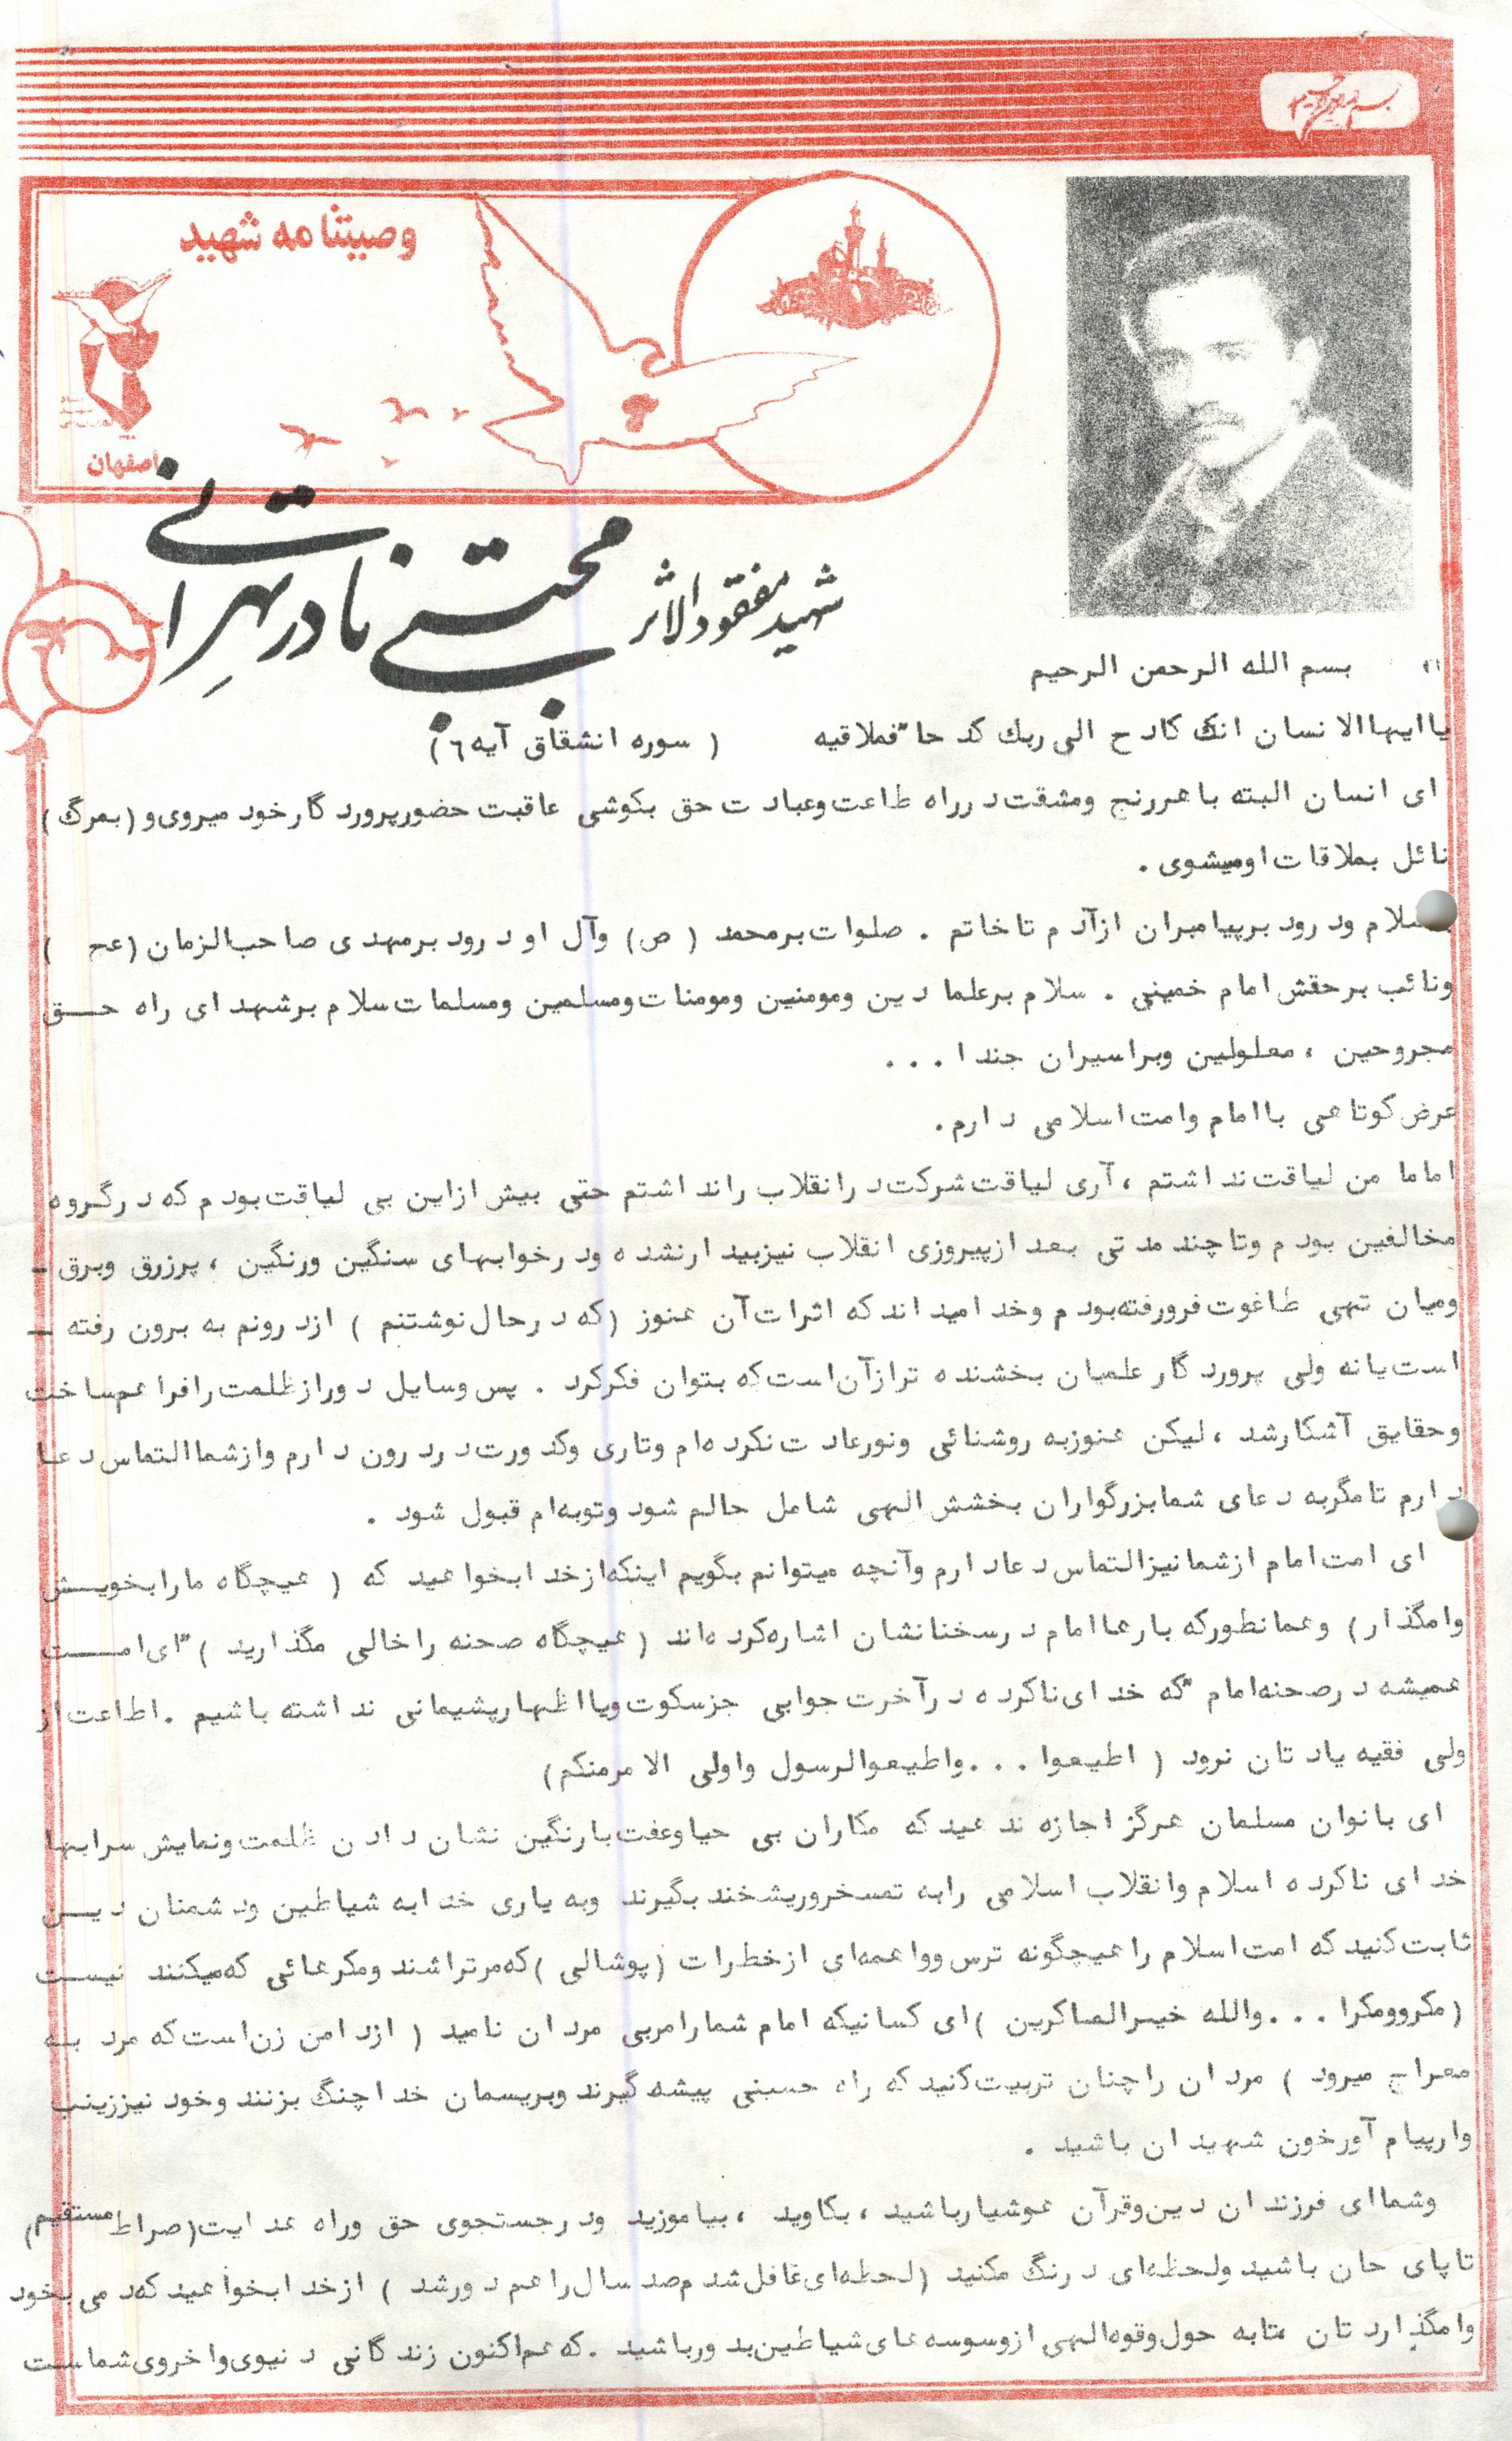 بسم الله الرحمن الرحیم
وصیتنامه شهید
اصفهان
شهید مفقودالاثر مجتبی نادر تهرانی
بسم الله الرحمن الرحیم
یا ایها الانسان انك كادح الی ربك كدحا" فملاقیه ( سوره انشقاق آیه ٦ )
ای انسان البته با هر رنج ومشقت در راه طاعت وعبادت حق بكوشی عاقبت حضور پروردگار خود میروی و (بمرگ )
نائل بملاقات او میشوی .
سلام ودرود بر پیامبران از آدم تا خاتم . صلوات بر محمد ( ص ) وآل او درود بر مهدی صاحب الزمان (عج )
ونائب برحقش امام خمینی . سلام بر علما دین ومومنین ومومنات ومسلمین ومسلمات سلام بر شهدای راه حق
مجروحین ، معلولین وبراسیران جندا ...
عرض كوتاهی با امام وامت اسلامی دارم.
اماما من لیاقت نداشتم ، آری لیاقت شركت در انقلاب را نداشتم حتی بیش از این بی لیاقت بودم كه در گروه
مخالفین بودم وتا چند مدتی بعد از پیروزی انقلاب نیز بیدار نشده ودر خوابهای سنگین ورنگین ، پرزرق وبرق ـ
ومیان تهی طاغوت فرو رفته بودم وخدا میداند كه اثرات آن هنوز (كه در حال نوشتنم ) از درونم به برون رفته ـ
است یا نه ولی پروردگار علمیان بخشنده تر از آن است كه بتوان فكر كرد . پس وسایل دور از ظلمت را فراهم ساخت
وحقایق آشكار شد ، لیكن هنوز به روشنائی ونور عادت نكرده ام وتاری وكدورت در درون دارم واز شما التماس دعا
دارم تا مگر به دعای شما بزرگواران بخشش الهی شامل حالم شود وتوبه ام قبول شود .
ای امت امام از شما نیز التماس دعا دارم وآنچه میتوانم بگویم اینكه از خدا بخواهید كه ( هیچگاه ما را بخویش
وامگذار ) وهمانطور كه بارها امام در سخنانشان اشاره كرده اند (هیچگاه صحنه را خالی مگذارید ) "ای امت
همیشه در صحنه امام" كه خدای ناكرده در آخرت جوابی جز سكوت ویا اظهار پشیمانی نداشته باشیم . اطاعت از
ولی فقیه یادتان نرود ( اطیعوا ... واطیعوالرسول واولی الامر منكم )
ای بانوان مسلمان هرگز اجازه ندهید كه مكاران بی حیا وعفت با رنگین نشان دادن ظلمت ونمایش سرابها
خدای ناكرده اسلام وانقلاب اسلامی را به تمسخر وریشخند بگیرند وبه یاری خدا به شیاطین ودشمنان دین
ثابت كنید كه امت اسلام را هیچگونه ترس وواهمه ای از خطرات (پوشالی ) كه مرتراشند ومكرهائی كه میكنند نیست
(مكرو ومكرا ... والله خیر الماكرین ) ای كسانیكه امام شما را مربی مردان نامید ( از دامن زن است كه مرد به
معراج میرود ) مردان را چنان تربیت كنید كه راه حسینی پیشه گیرند وبریسمان خدا چنگ بزنند وخود نیز زینب
وار پیام آور خون شهیدان باشید .
وشما ای فرزندان دین وقرآن هوشیار باشید ، بكاوید ، بیاموزید ودر جستجوی حق وراه هدایت (صراط مستقیم )
تا پای جان باشید ولحظه ای درنگ مكنید (لحظه ای غافل شدم صد سال راهم دور شد ) از خدا بخواهید كه دمی بخود
وامگذاردتان ، تا به حول وقوه الهی از وسوسه های شیاطین بدور باشید . كه هم اكنون زندگانی دنیوی واخروی شماست